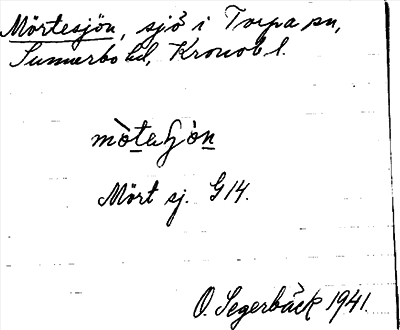 Mörtesjön, sjö i Torpa sn,
Sunnerbo hd, Kronob l.
mö̀taʃön
Mört sj. G14.
O. Segerbäck 1941.